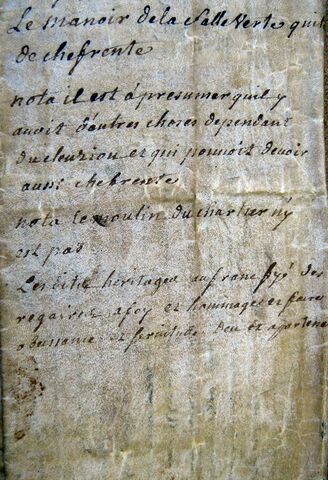 Le manoir de la salle verte quit
de chefrente
nota il est a presumer quil y
avoit d'autres choses dependant
du cleuzion et qui pouvoit devoir
aussi chefrente
nota le moulin du chartier n'y
est pas
Les dits heritages au franc fyé des
regaires a foy et hommages et faire
obeissance et Deu et apartenant